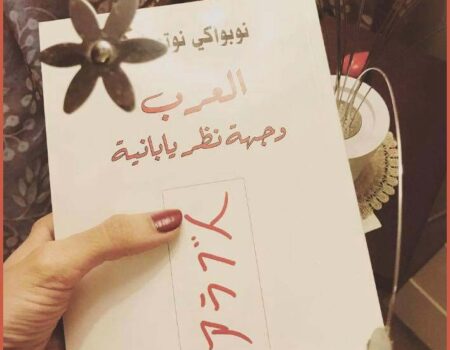 نوبواكي
العرب
وجهة نظر يابانية